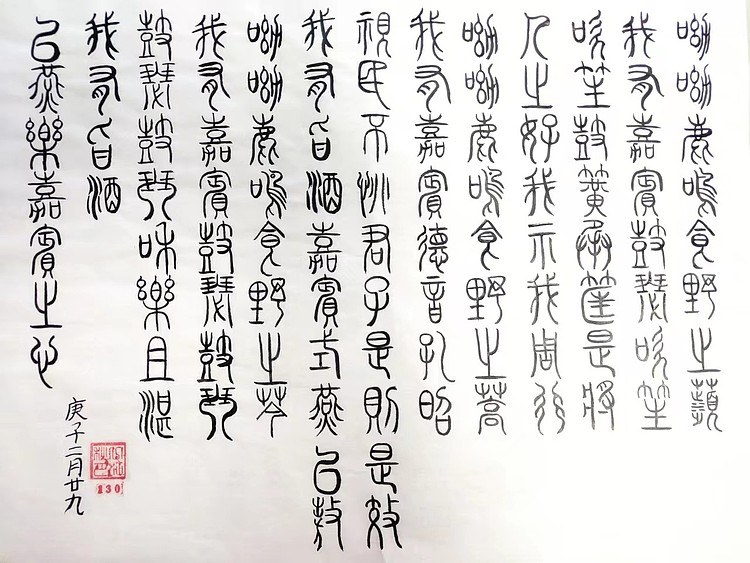 呦呦鹿鳴食野之蘋
我有嘉賓鼓瑟吹笙
吹笙鼓簧承筐是將
人之好我示我周行
呦呦鹿鳴食野之蒿
我有嘉賓德音孔昭
視民不恌君子是則是效
我有旨酒嘉賓式燕以敖
呦呦鹿鳴食野之芩
我有嘉賓鼓瑟鼓琴
鼓瑟鼓琴和樂且湛
我有旨酒
以燕樂嘉賓之心
庚子二月廿九
130